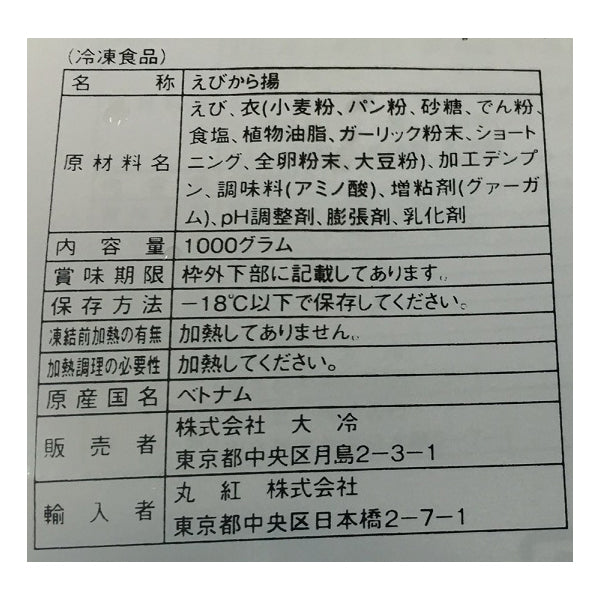 (冷凍食品)
名称 えびから揚
原材料名 えび、衣(小麦粉、パン粉、砂糖、でん粉、
食塩、植物油脂、ガーリック粉末、ショート
ニング、全卵粉末、大豆粉)、加工デンプ
ン、調味料(アミノ酸)、増粘剤(グァーガ
ム)、pH調整剤、膨張剤、乳化剤
内容量 1000グラム
賞味期限 枠外下部に記載してあります。
保存方法 −18℃以下で保存してください。
凍結前加熱の有無 加熱してありません。
加熱調理の必要性 加熱してください。
原産国名 ベトナム
販売者 株式会社 大冷
東京都中央区月島2−3−1
輸入者 丸紅 株式会社
東京都中央区日本橋2−7−1